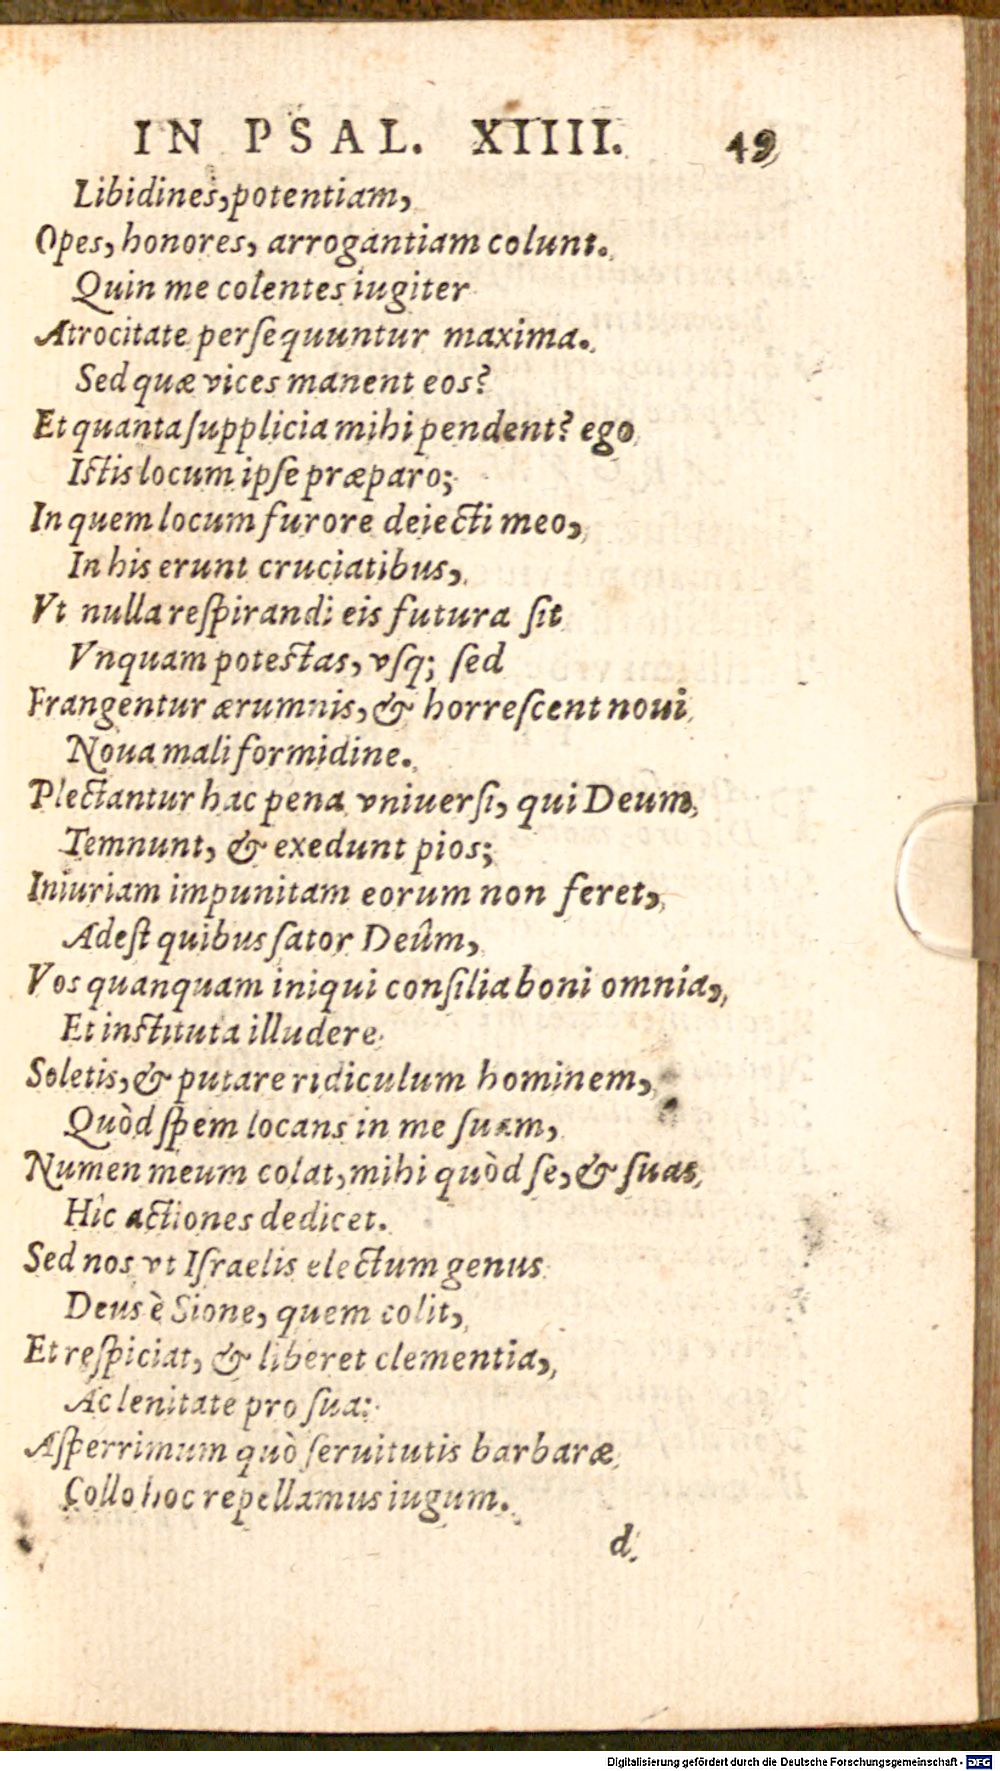 IN PSAL. XIIII. 49
Libidines, potentiam,
Opes, honores, arrogantiam colunt.
Quin me colentes iugiter
Atrocitate perſequuntur maxima.
Sed quæ vices manent eos?
Et quanta ſupplicia mihi pendent? ego
Iſtis locum ipſe præparo;
In quem locum furore deiecti meo,
In his erunt cruciatibus,
Vt nulla reſpirandi eis futura ſit
Vnquam poteſtas, vſq; ſed
Frangentur ærumnis, & horreſcent noui
Noua mali formidine.
Plectantur hac pena vniuerſi, qui Deum
Temnunt, & exedunt pios;
Iniuriam impunitam eorum non feret,
Adeſt quibus ſator Deûm,
Vos quanquam iniqui conſilia boni omnia,
Et inſtituta illudere
Soletis, & putare ridiculum hominem,
Quòd ſpem locans in me ſuam,
Numen meum colat, mihi quòd ſe, & ſuas
Hîc actiones dedicet.
Sed nos vt Iſraelis electum genus
Deus è Sione, quem colit,
Et reſpiciat, & liberet clementia,
Ac lenitate pro ſua:
Aſperrimum quò ſeruitutis barbaræ
Collo hoc repellamus iugum.
d
Digitalisierung gefördert durch die Deutsche Forschungsgemeinschaft - DFG